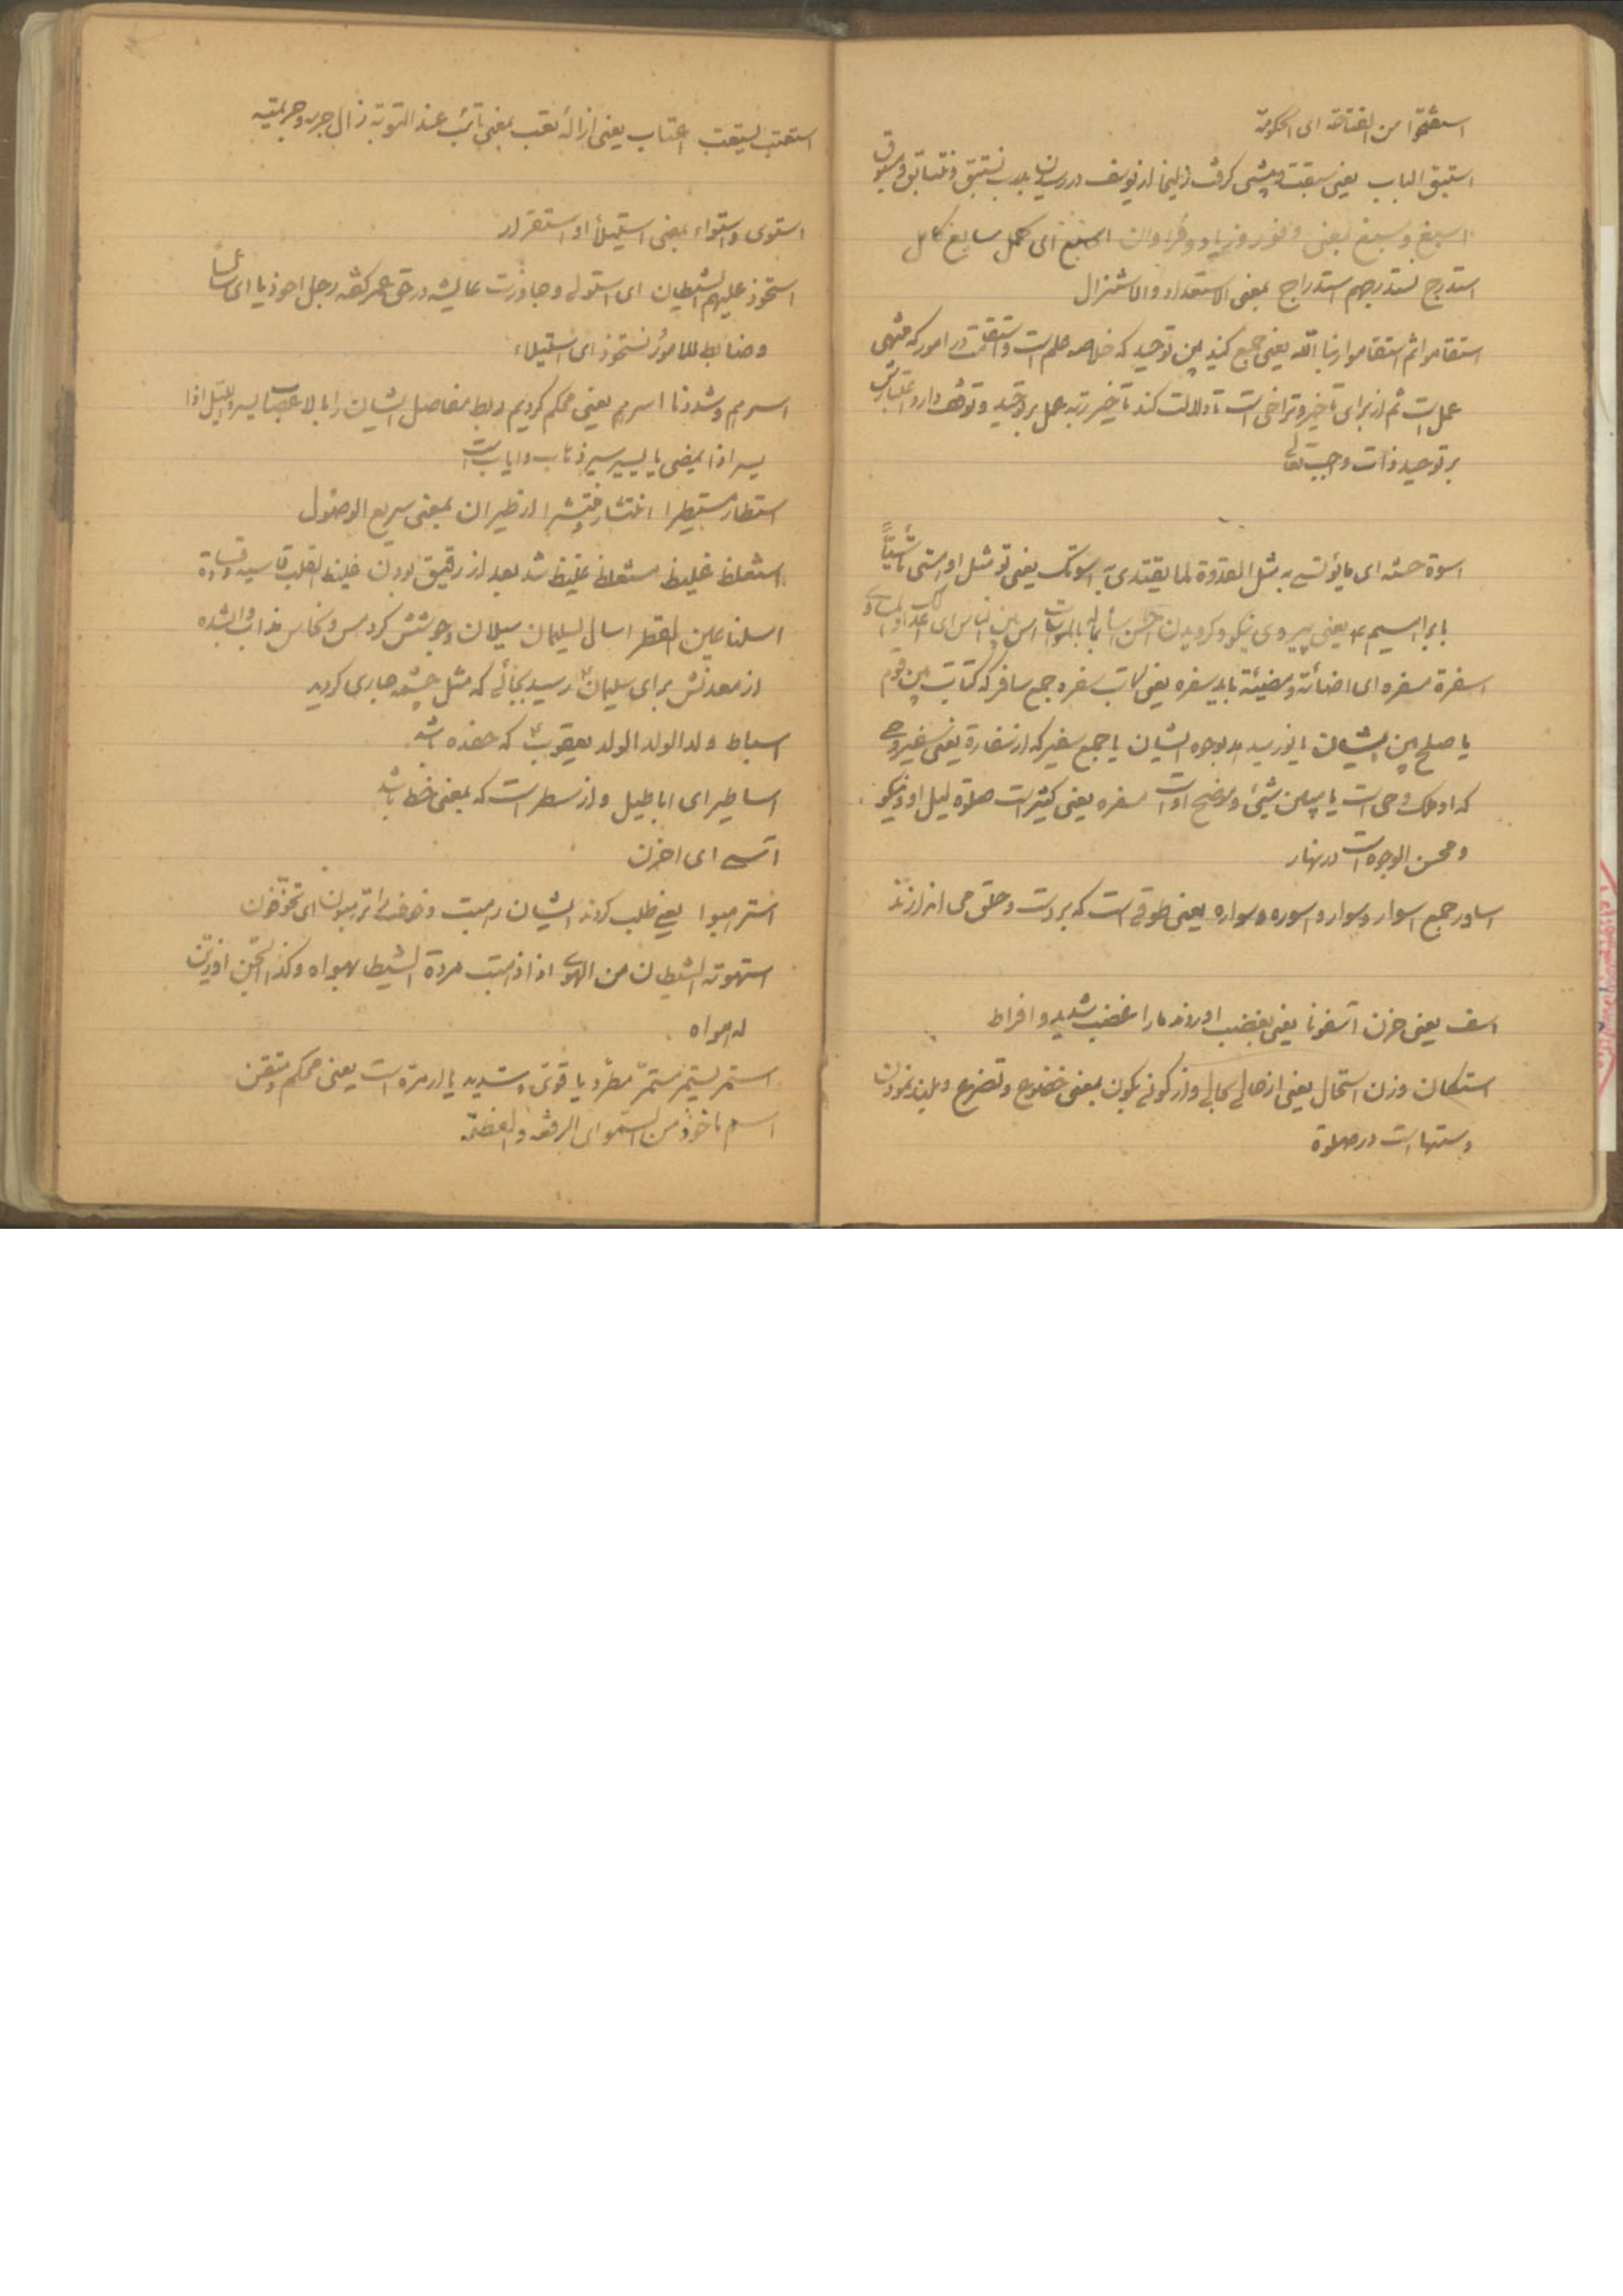 استفتحوا من الفتاحة ای الحکومة
استبق الباب یعنی سبقت و پیشی گرفت زلیخا از یوسف در رسیدن بدرب نستبق و نتسابق و سبوق
اسبغ و سبغ بمعنی وفور و زیاد و فراوان اسبغ ای کمل سابغ کامل
استدرج نستدرجهم استدراج بمعنی الاستعداد و الاستنزال
استقاموا ثم استقاموا ربنا الله یعنی جمع کنید بین توحید که خلاصه علم است و استقامت در امور که منتهی
عمل است ثم از برای تاخیر و تراخی است تا دلالت کند تاخیر رتبه عمل بر توحید و توقف دارد اعتبارش
بر توحید ذات واجب تعالی
اسوة حسنه ای ما یؤتسی به مثل القدوة لما یقتدی به اسوتک یعنی تو مثل او استی تأسیاً
بابراهیم ع یعنی پیروی نیکو کردیدن بالمواسات اس بین الناس ای
اسفرة مسفره ای اضائة و مضیئة باید سفره یعنی کاتب سفره جمع سافر که کتابت بین قوم
یا صلح بین ایشان یا جمع سفیر که از سفارة یعنی سفیر وحی
که او ملک وحی است یا مبین شیئ و موضح او است مسفره یعنی کثیر است صلوة لیل او و نیکو
و محسن الوجوه است در نهار
اساور جمع اسوار و سوار و اسوره و سواره یعنی طوقی است که بر دست و حلق می اندازند
اسف یعنی حزن آسفونا یعنی بغضب اوروند ما را غضب شدید و افراط
استکان وزن استحال یعنی از حالی بحالی و از کونی بکون بمعنی خضوع و تضرع و بلند نمودن
دستها است در صلوة
استعتب یستعتب اعتاب یعنی ازاله تعب بمعنی تائب عند التوبة زال جرمه و جریمته
استوی و استواء بمعنی استیلا او استقرار
استحوذ علیهم الشیطان ای استولی و جاوزت عایشه در حق عمر گفته رجل احوذیا ای
و ضابط للامور نستحوذ ای استیلاء
اسرهم و شددنا اسرهم یعنی محکم کردیم ربط مفاصل ایشان را بالاعصاب یسر و اللیل اذا
یسر اذا یمضی یا یسیر سیر ذهاب و ایاب است
استطار مستطیرا انتشار منتشرا از طیران بمعنی سریع الوصول
استغلظ غلیظ مستغلظ غلیظ شد بعد از رقیق بودن غلیظ القلب قاسیه و قساوة
اسلنا عین القطر اسال لسلیمان سیلان و جوشش کرد مس و نحاس مذاب شده
از معدنش برای سلیمان ع رسید بجائی که مثل چشمه جاری کردید
اسباط ولد الولد الولد یعقوب ع که حفده اش
اساطیر ای اباطیل و از سطر است که بمعنی خط باشد
آسی ای احزن
استرهبوا یعنی طلب کردند ایشان رهبت و خوف را ترهبون ای تخوفون
استهوته الشیطان من الهوی اذا ذهبت مردة الشیطان بهواه و کذا الجن او زینت
له هواه
استمر یستمر مستمرّ مطرد یا قوی و شدید یا از مرّه است یعنی محکم و متقن
اسم ماخوذ من السمو ای الرفعه و العظمة